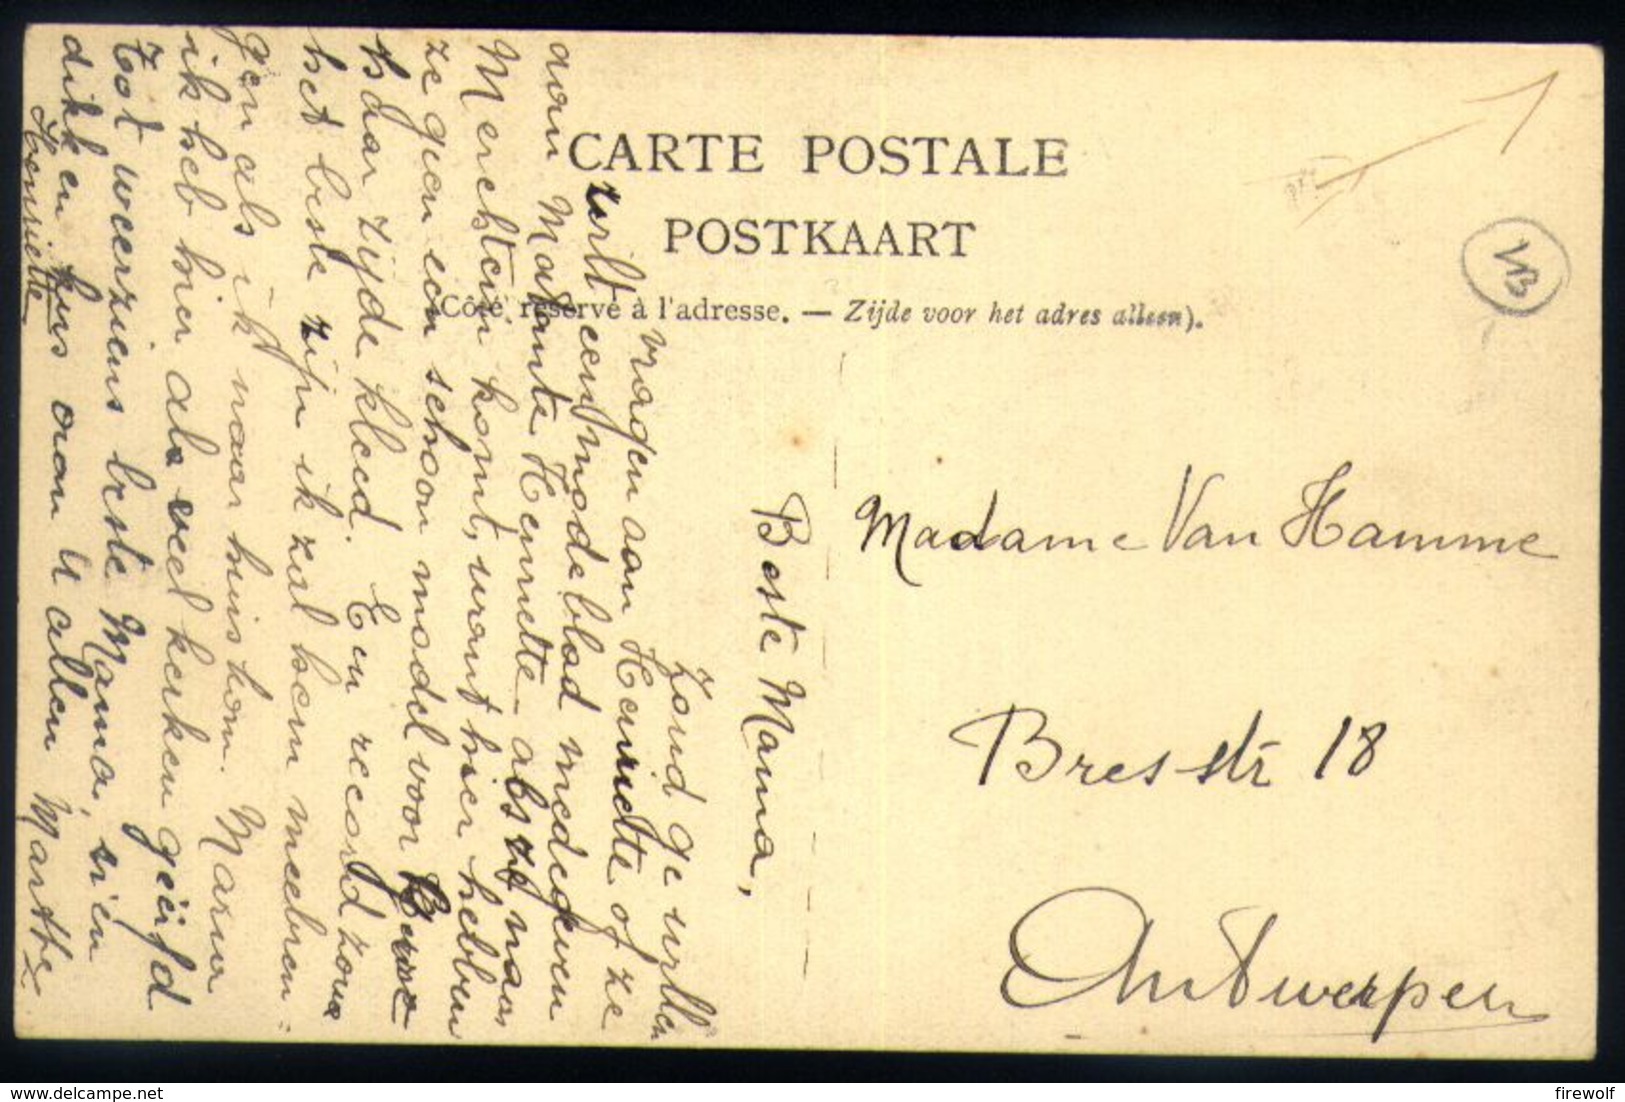 CARTE POSTALE
POSTKAART
(Côté réservé à l'adresse. — Zijde voor het adres alleen).
VB
Madame Van Hamme
Bresstr 18
Antwerpen
Beste Mama,
Zoud ge willen
vragen aan Henriette of ze
wilt een modeblad medegeven
aan Matante Henriette als ze naar
Merchtem komt, want hier hebben
ze geen een schoon model voor
haar zijde kleed. En record zou
het beste zijn ik zal hem meebren=
gen als ik naar huis kom. Maar
ik heb hier al veel kerken
Tot weerziens beste Mama, 'n
dikken kus aan U allen Marthe
Henriette
delcampe.net
firewolf